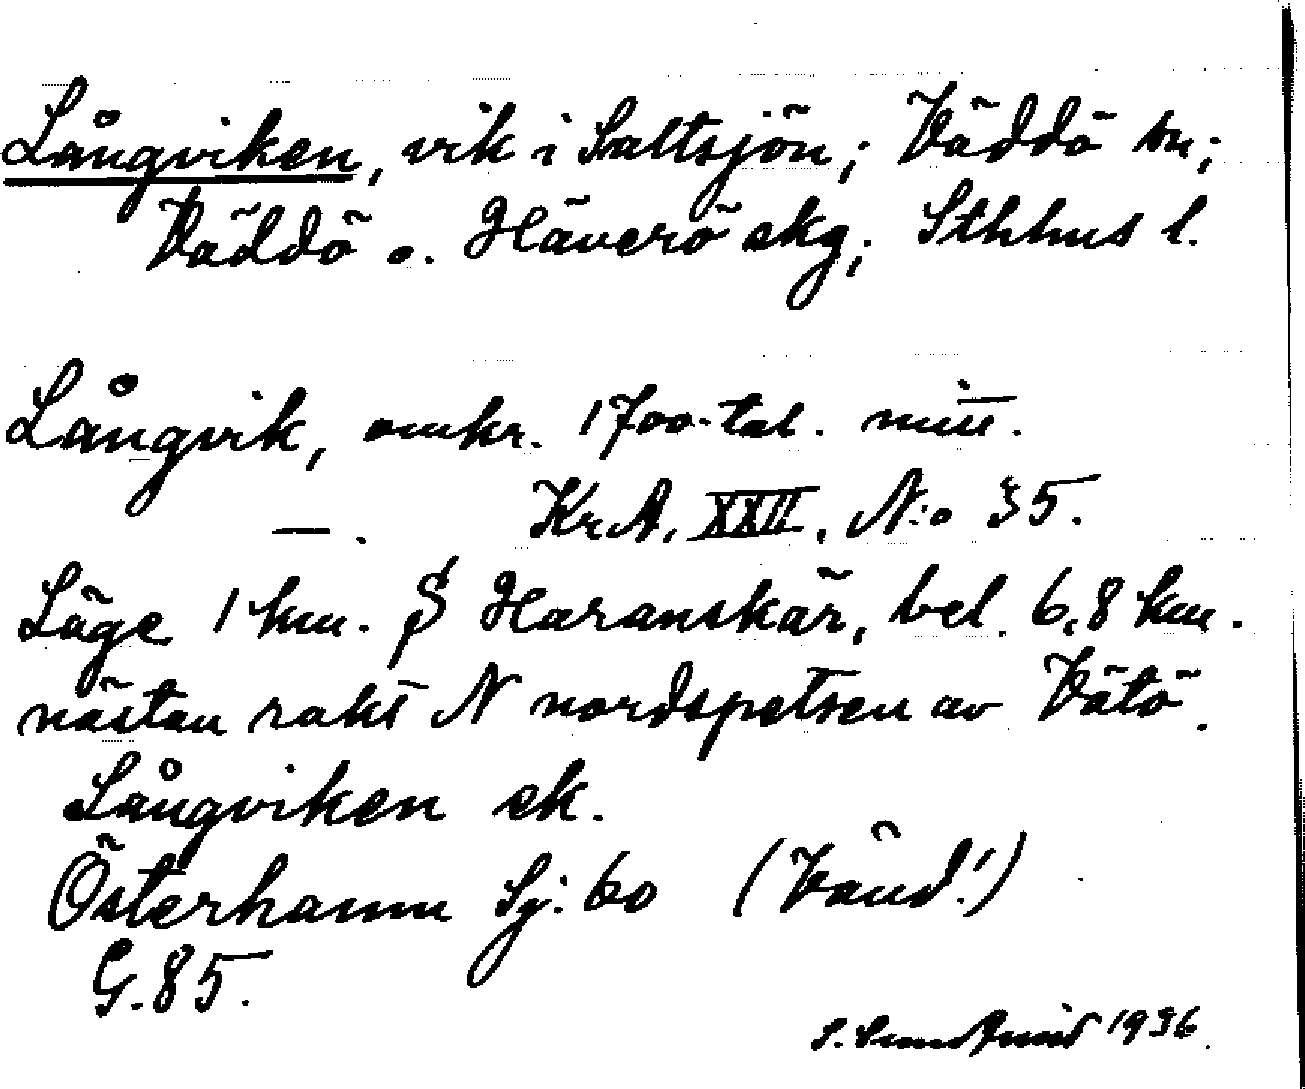 Långviken, vik i Saltsjön; Väddö sn;
Väddö o. Häverö skg; Sthhus l.
Långvik, omkr. 1700-tal. mitt.
—. KrA, XXII, N:o 35.
Läge 1 km. S Haranskär, bel. 6,8 km.
nästan rakt N nordspetsen av Vätö.
Långviken ek.
Österhamn Sj: 60 (Vänd!)
G. 85.
S. Sundqvist 1936.